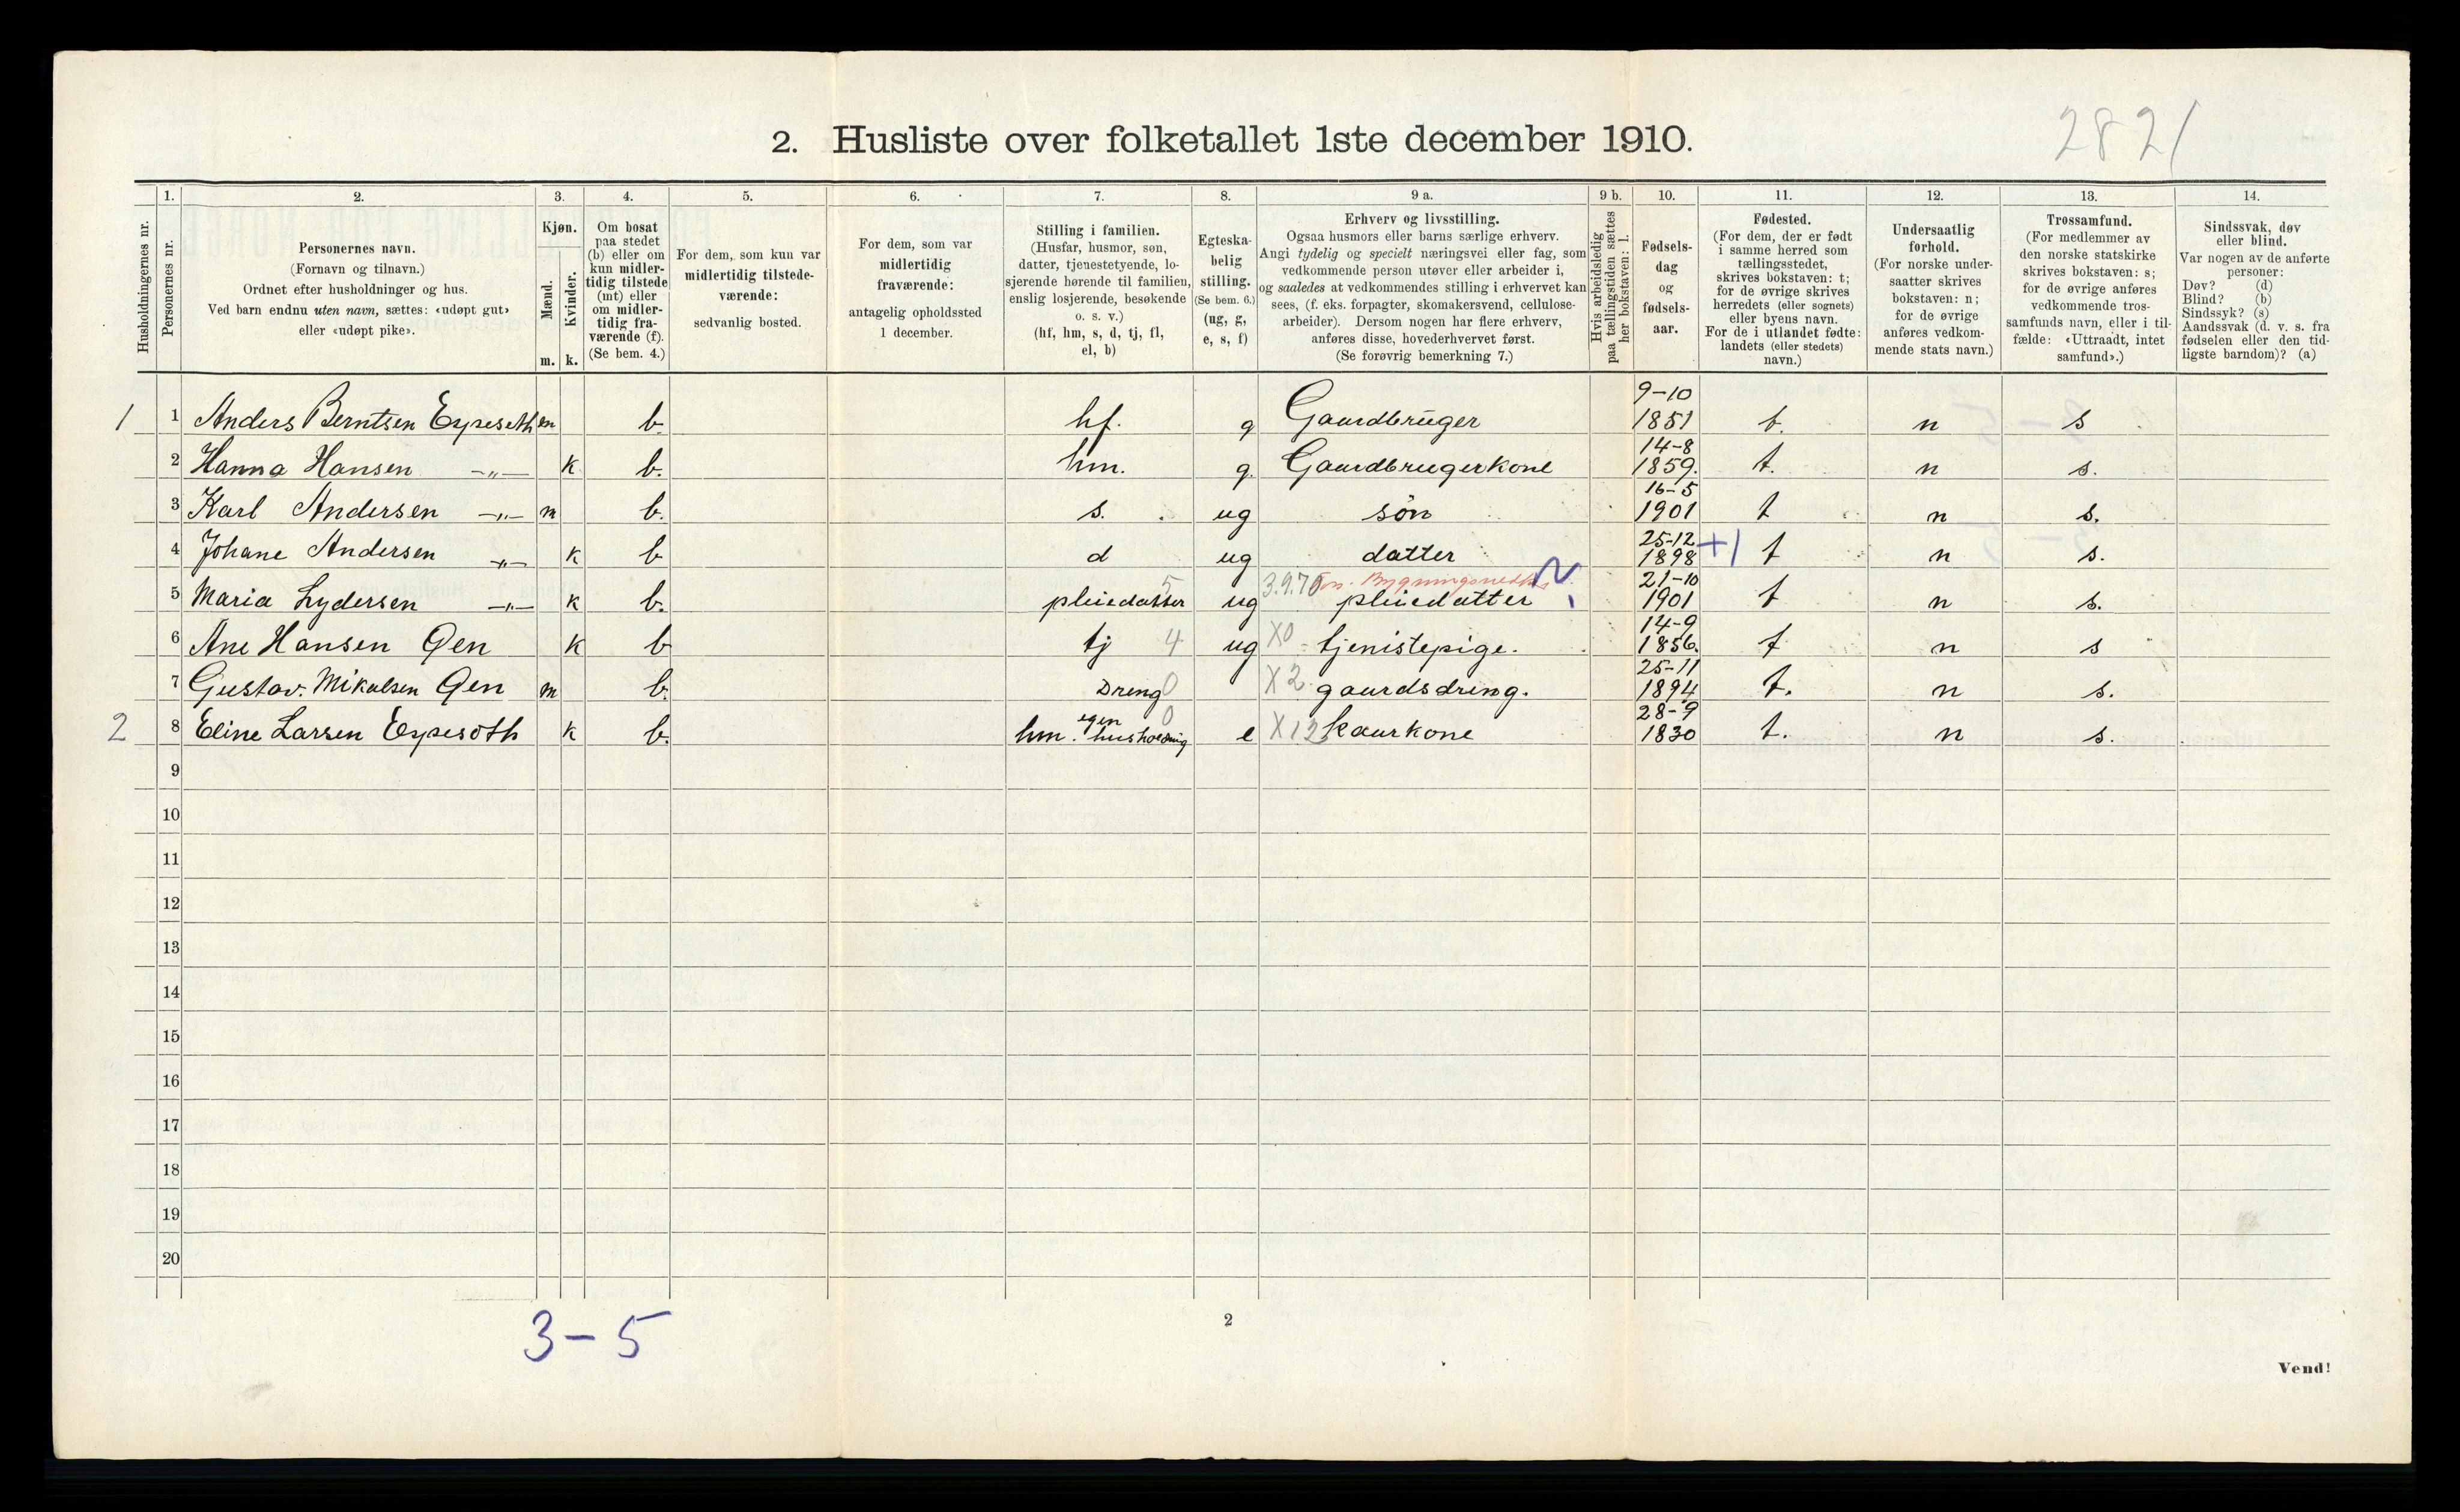 2821
2. Husliste over folketallet 1ste december 1910.
Husholdningernes nr.
1.
Personernes nr.
2.
Personernes navn.
(Fornavn og tilnavn.)
Ordnet efter husholdninger og hus.
Ved barn endnu uten navn, sættes: «udøpt gut»
eller «udøpt pike».
3.
Kjøn.
Mænd.
Kvinder.
m. k.
4.
Om bosat
paa stedet
(b) eller om
kun midler-
tidig tilstede
(mt) eller
om midler-
tidig fra-
værende (f).
(Se bem. 4.)
5.
For dem, som kun var
midlertidig tilstede-
værende:
sedvanlig bosted.
6.
For dem, som var
midlertidig
fraværende:
antagelig opholdssted
1 december.
7.
Stilling i familien.
(Husfar, husmor, søn,
datter, tjenestetyende, lo-
sjerende hørende til familien,
enslig losjerende, besøkende
o. s. v.)
(hf, hm, s, d, tj, fl,
el, b)
8.
Egteska-
belig
stilling.
(Se bem. 6.)
(ug, g,
e, s, f)
9 a.
Erhverv og livsstilling.
Ogsaa husmors eller barns særlige erhverv.
Angi tydelig og specielt næringsvei eller fag, som
vedkommende person utøver eller arbeider i,
og saaledes at vedkommendes stilling i erhvervet kan
sees, (f. eks. forpagter, skomakersvend, cellulose-
arbeider). Dersom nogen har flere erhverv,
anføres disse, hovederhvervet først.
(Se forøvrig bemerkning 7.)
9 b.
Hvis arbeidsledig
paa tællingstiden sættes
her bokstaven: l.
10.
Fødsels-
dag
og
fødsels-
aar.
11.
Fødested.
(For dem, der er født
i samme herred som
tællingsstedet,
skrives bokstaven: t;
for de øvrige skrives
herredets (eller sognets)
eller byens navn.
For de i utlandet fødte:
landets (eller stedets)
navn.)
12.
Undersaatlig
forhold.
(For norske under-
saatter skrives
bokstaven: n;
for de øvrige
anføres vedkom-
mende stats navn.)
13.
Trossamfund.
(For medlemmer av
den norske statskirke
skrives bokstaven: s;
for de øvrige anføres
vedkommende tros-
samfunds navn, eller i til-
fælde: «Uttraadt, intet
samfund».)
14.
Sindssvak, døv
eller blind.
Var nogen av de anførte
personer:
Døv? (d)
Blind? (b)
Sindssyk? (s)
Aandssvak (d. v. s. fra
fødselen eller den tid-
ligste barndom)? (a)
1 1 Anders Berntsen m b. hf. g Gaardbruger 9-10 1851 t. n s
2 Hanna Hansen -„- k b. hm. g. Gaardbrugerkone 14-8 1859. t. n s.
3 Karl Andersen -„- m b. s. ug søn 16-5 1901 t n s.
4 Johane Andersen -„- k b d ug datter 25-12 1898 +1 t n s.
5 Maria Lydersen -„- k b. pleiedatter 5 ug 3.9.70 pleiedatter 21-10 1901 t n s.
6 Ane Hansen k b tj 4 ug X0 tjenistepige. 14-9 1856. t n s
7 Gustav. Mikalsen m b. Dreng 0 X2 gaardsdreng. 25-11 1894 t. n s.
2 8 Eline Larsen k b. hm. egen husholdning 0 e X12 kaarkone 28-9 1830 t. n s.
9
10
11
12
13
14
15
16
17
18
19
20
3-5
2
Vend!